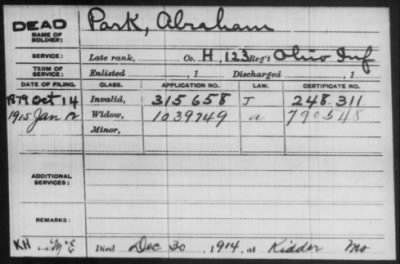 DEAD
NAME OF SOLDIER: Park, Abraham
SERVICE: Late rank, Co. H, 123 Reg't Ohio Inf
TERM OF SERVICE: Enlisted , 1 Discharged , 1
DATE OF FILING. CLASS. APPLICATION NO. LAW. CERTIFICATE NO.
1879 Oct 14 Invalid, 315658 J 248.311
1915 Jan 12 Widow, 1039749 a 790548
Minor,
ADDITIONAL SERVICES:
REMARKS:
KH Died Dec 30, 1914, at Kidder Mo